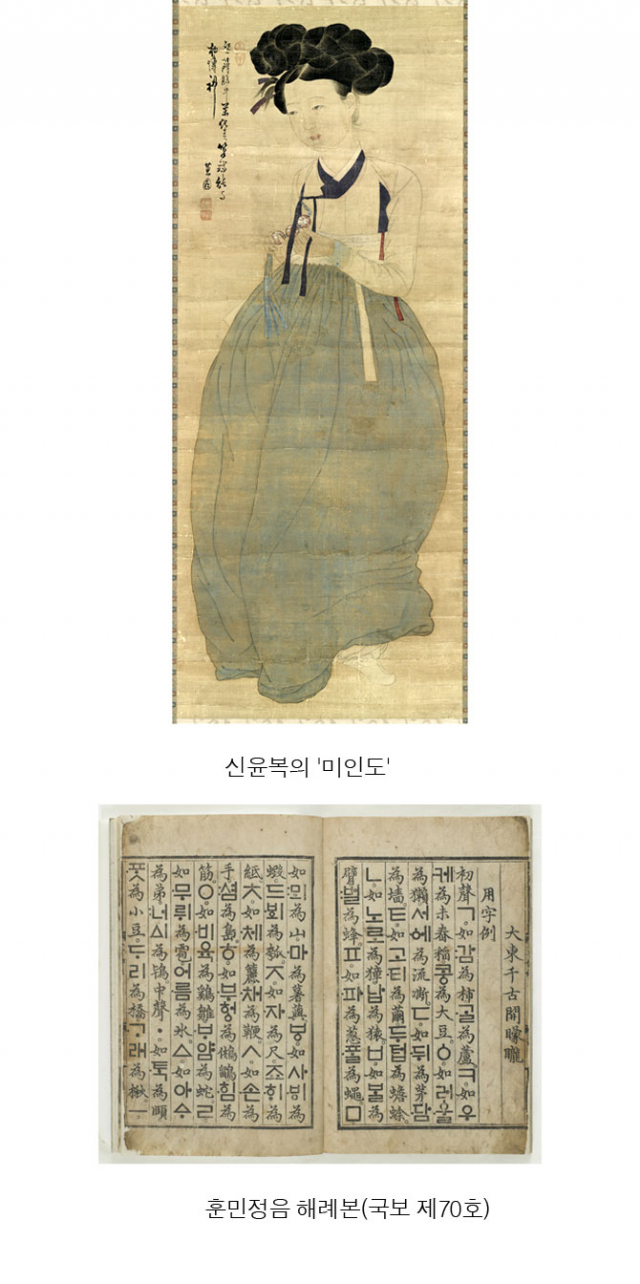 物傳神
蕙園
신윤복의 '미인도'
大東千古開矇矓
用字例
初聲ㄱ。如:감為柿。·ᄀᆞᆯ為蘆。ㅋ。如우
·케為未舂稻。콩為大豆。ㆁ。如러·울
為獺。서·에為流凘。ㄷ。如·뒤為茅。·담
為墻。ㅌ。如고·티為繭。두텁為蟾蜍。
ㄴ。如노로為獐。납為猿。ㅂ。如ᄇᆞᆯ為
臂。:벌為蜂。ㅍ。如·파為葱。·ᄑᆞᆯ為蠅。ㅁ
如:뫼為山。·마為薯藇。ㅸ。如사·ᄫᅵ為
蝦。드·ᄫᅴ為瓠。ㅈ。如·자為尺。죠·ᄒᆡ為
紙。ㅊ。如·체為籭。·채為鞭。ㅅ。如·손為
手。:셤為島。ㅎ。如·부헝為鵂鶹。·힘為
筋。ㅇ。如·비육為鷄雛。·ᄇᆞ얌為蛇。ㄹ
如·무뤼為雹。어·름為氷。ㅿ。如아ᅀᆞ
為弟。:너ᅀᅵ為鴇。中聲ㆍ。如·ᄐᆞᆨ為頤
·ᄑᆞᆺ為小豆。ᄃᆞ리為橋。·ᄀᆞ래為楸。ㅡ
훈민정음 해례본(국보 제70호)